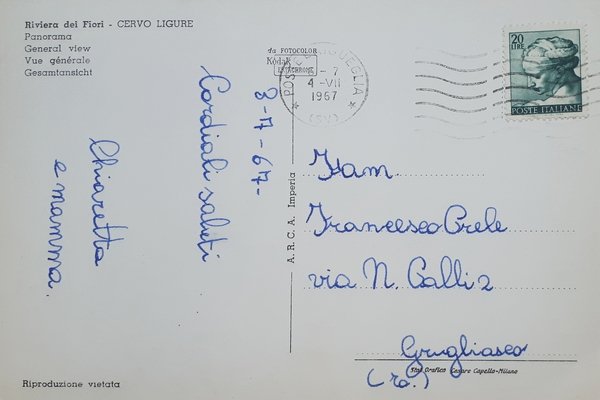 Riviera dei Fiori - CERVO LIGURE
Panorama
General view
Vue générale
Gesamtansicht
da FOTOCOLOR
Kodak
EKTACHROME
4 -VII
1967
(SV)
20
LIRE
POSTE ITALIANE
3-7-67-
Cordiali saluti
Chiaretta
e mamma.
A.R.C.A. Imperia
Fam
Francesco Crele
via N. Galli 2
Grugliasco
(To.)
Stab. Grafico Cesare Capello-Milano
Riproduzione vietata